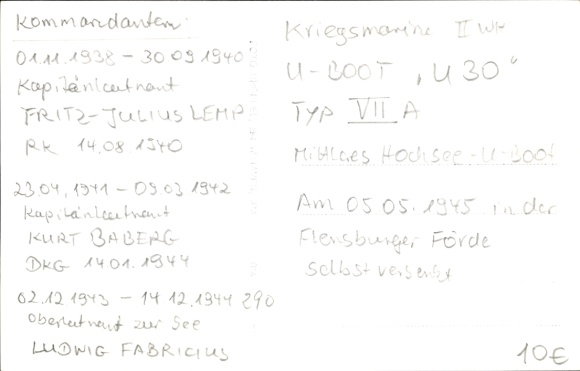 Kommandanten:
01.11.1938 - 30 09 1940
Kapitänleutnant
FRITZ-JULIUS LEMP
RK 14.08 1940
23 04.1941 - 09 03 1942
Kapitänleutnant
KURT BABERG
DKG 14 01. 1944
02.12 1943 - 14 12.1944
Oberleutnant zur See
LUDWIG FABRICIUS
Kriegsmarine II WK
U-BOOT "U 30"
TYP VII A
Mittleres Hochsee-U-Boot
Am 05 05. 1945 in der
Flensburger Förde
selbst versenkt
10€